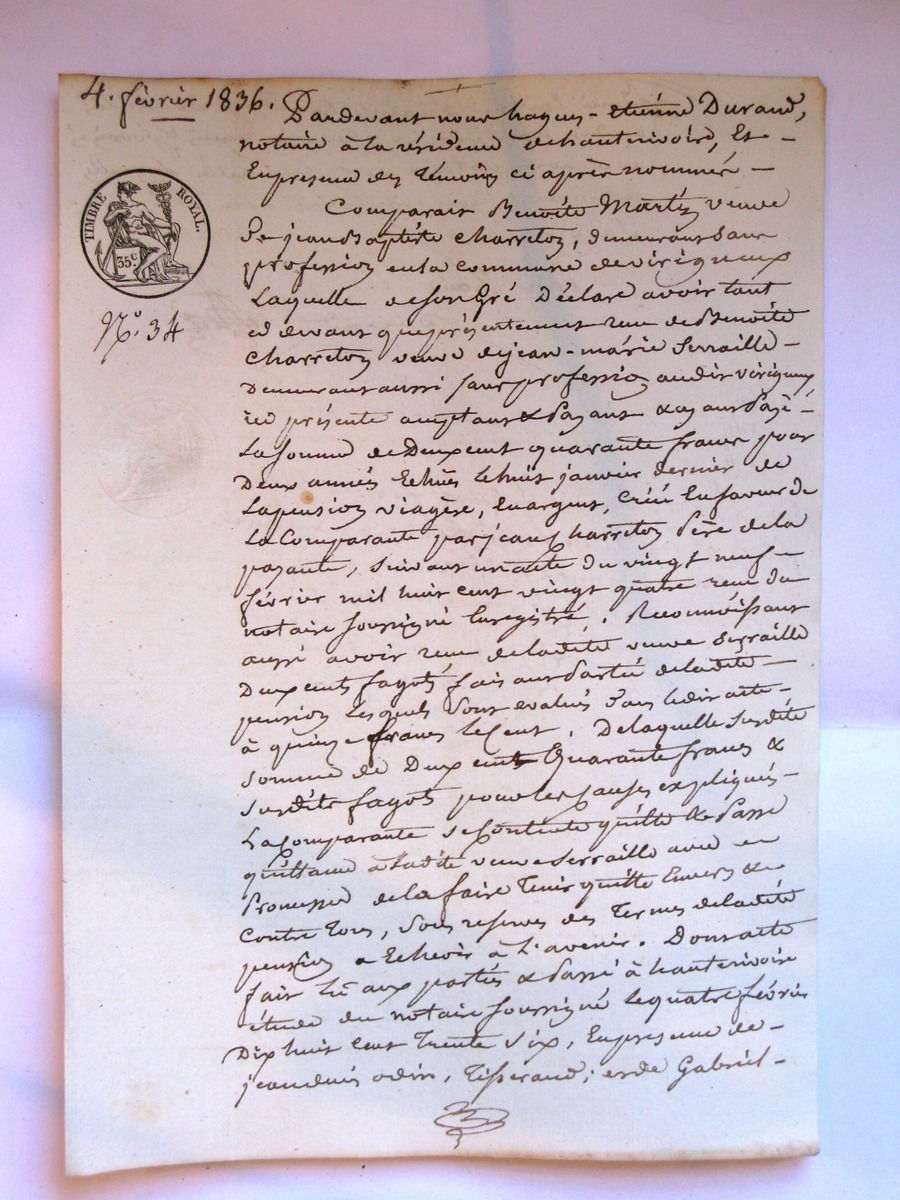 4. février 1836.
Pardevant nous hagues-étiénne Durand,
notaire à la résidence dehauterivoire, Et-
Enpresence des Témoins ci après nommés-
TIMBRE ROYAL.
35c
N.º 34
Comparait Benoîte Martin veuve
De jeanBaptiste Charreton, demeurant Sans
profession enla commune devirigneux
Laquelle deson Gré Déclare avoir tant
cidevant queprésentement reçu deBenoîte
Charreton veuve dejean-marie Serraille-
Demeurant aussi sans profession audit virigneux
ici présente acceptant & Payant & ayant Payé-
La somme de Deux cent quarante francs pour
Deux années Echües lehuit janvier dernier de
Lapension viagère, Enargent, Créée Enfaveur de
La Comparante par jean Charreton Père de la
payante, suivant un acte du vingt neuf-
février mil huit cent vingt quatre reçu du
notaire soussigné Enregistré. Reconnoissant
aussi avoir reçu de ladite veuve Serraille
Deux cents fagots faisant Partie deladite-
pension Lesquels sont evalués dans ledit acte-
à quinze francs le Cent. Delaquelle susdite
somme de Deux cent Quarante francs &
susdits fagots pour les Causes expliqués-
La Comparante se Contente quitte & Passe
quittance à Ladite veuve Serraille avec
Promesse de la faire Tenir quitte Envers &
Contre Tous, sous reserves des Termes deladite
pension a Echeoir à L'avenir. Dont acte
fait Lû aux parties & Passé à hauterivoire
étude du notaire soussigné Lequatre février
Dix huit Cent Trente Six, Enpresence de-
jean odin, Tisserand; et de Gabriel-